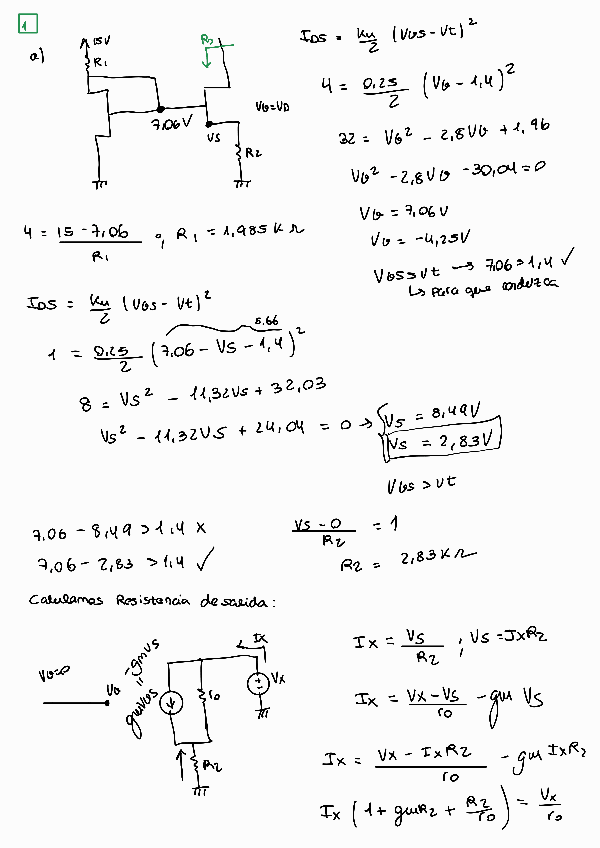 1
a)
15V
R1
7.06V
R3
VG=VD
VS
R2
IDS = kn/2 (VGS - Vt)²
4 = 0,25/2 (VG - 1,4)²
32 = VG² - 2,8VG + 1,96
VG² - 2,8VG - 30,04 = 0
VG = 7,06V
VG = -4,25V
VGS > Vt → 7,06 > 1,4 ✓
↳ para que conduzca
4 = (15 - 7,06)/R1 ; R1 = 1,985 KΩ
IDS = kn/2 (VGS - Vt)²
5,66
1 = 0,25/2 (7,06 - VS - 1,4)²
8 = VS² - 11,32VS + 32,03
VS² - 11,32VS + 24,04 = 0 → VS = 8,49V
VS = 2,83V
VGS > Vt
7,06 - 8,49 > 1,4 X
7,06 - 2,83 > 1,4 ✓
(VS - 0)/R2 = 1
R2 = 2,83KΩ
Calulamos Resistencia de salida:
VG=0
VG
-gmVS
gmVGS
r0
R2
IX
VX
IX = VS/R2 ; VS = IXR2
IX = (VX - VS)/r0 - gm VS
IX = (VX - IXR2)/r0 - gm IXR2
IX (1 + gmR2 + R2/r0) = VX/r0